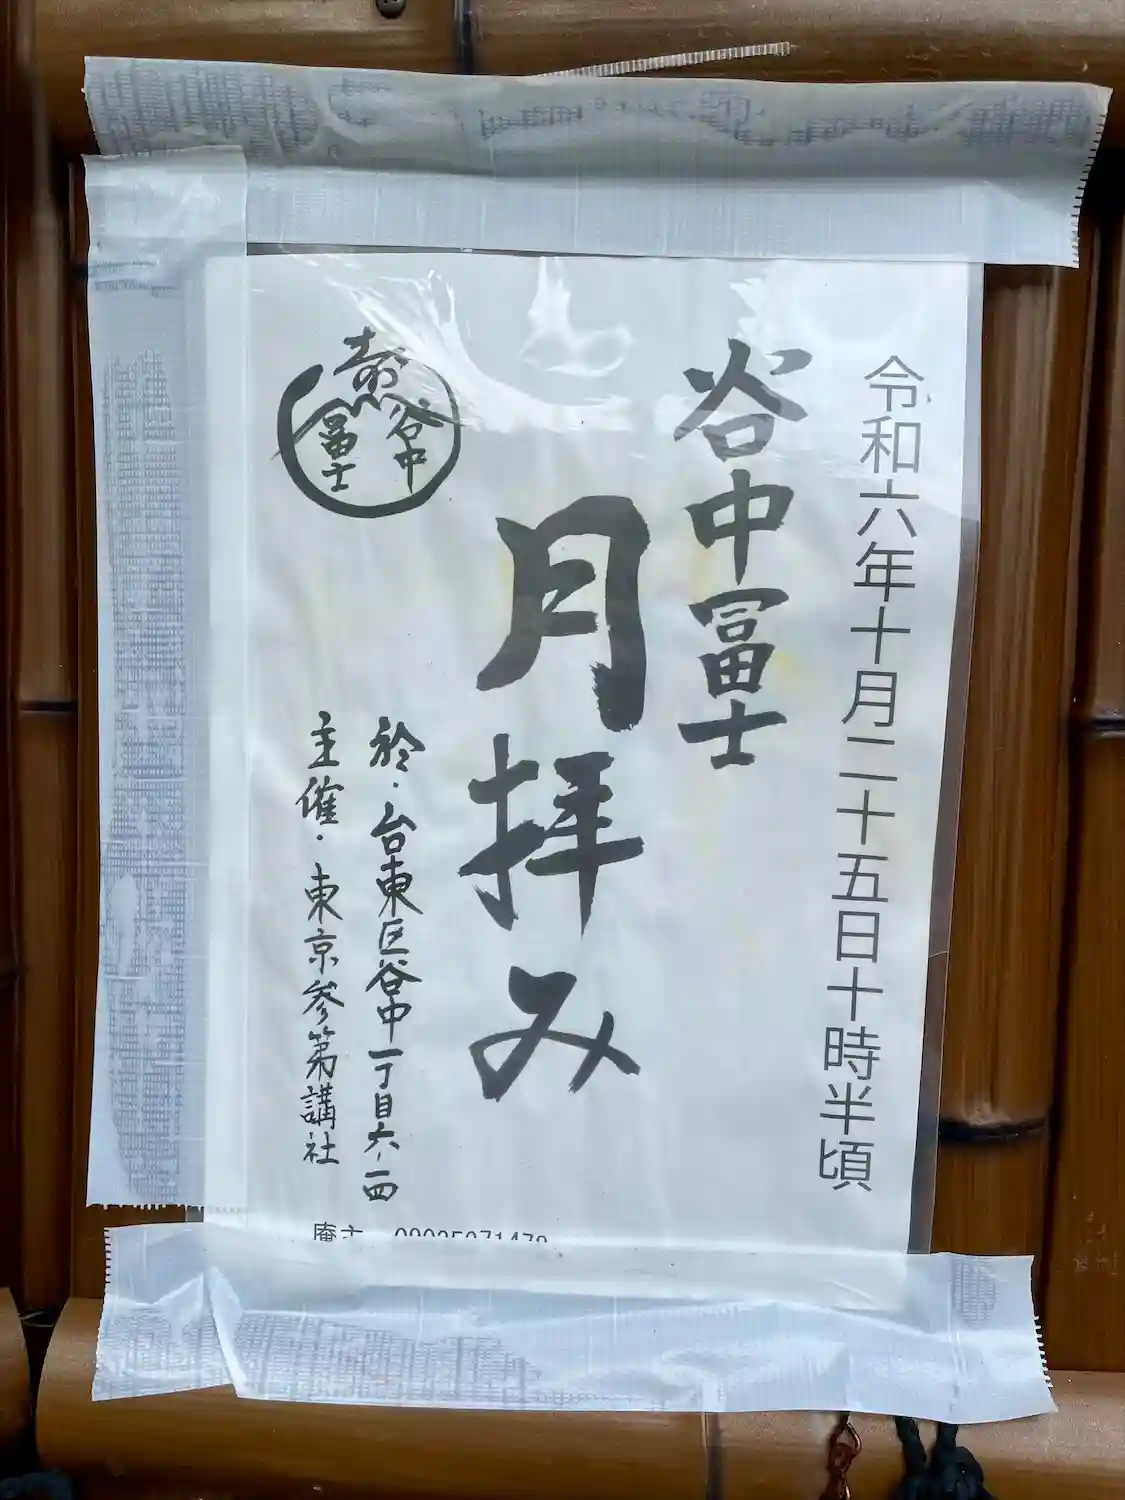 令和六年十月二十五日十時半頃
谷中冨士
月拝み
谷中
冨士
於・台東区谷中一丁目六-一四
主催・東京参第講社
庵主